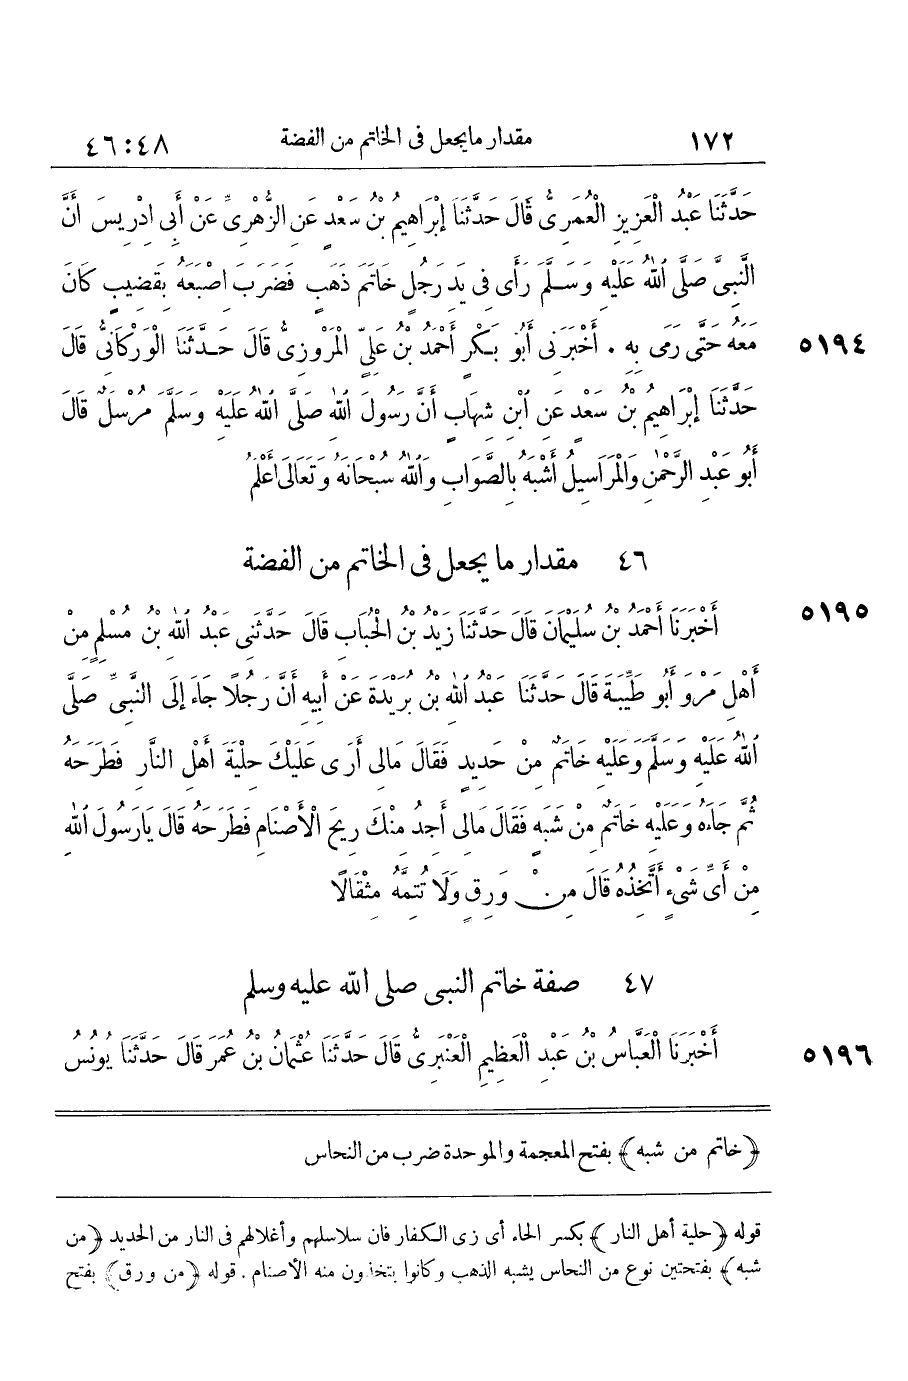 ١٧٢ مقدار ما يجعل فى الخاتم من الفضة ٤٦:٤٨
حَدَّثَنَا عَبْدُ الْعَزِيزِ الْعُمَرِىُّ قَالَ حَدَّثَنَا إِبْرَاهِيمُ بْنُ سَعْدٍ عَنِ الزُّهْرِىِّ عَنْ أَبِى إِدْرِيسَ أَنَّ
النَّبِىَّ صَلَّى اللّٰهُ عَلَيْهِ وَسَلَّمَ رَأَى فِى يَدِ رَجُلٍ خَاتَمَ ذَهَبٍ فَضَرَبَ إِصْبَعَهُ بِقَضِيبٍ كَانَ
مَعَهُ حَتَّى رَمَى بِهِ . أَخْبَرَنِى أَبُو بَكْرٍ أَحْمَدُ بْنُ عَلِىٍّ الْمَرْوَزِىُّ قَالَ حَدَّثَنَا الْوَرْكَانِىُّ قَالَ ٥١٩٤
حَدَّثَنَا إِبْرَاهِيمُ بْنُ سَعْدٍ عَنِ ابْنِ شِهَابٍ أَنَّ رَسُولَ اللّٰهِ صَلَّى اللّٰهُ عَلَيْهِ وَسَلَّمَ مُرْسَلٌ قَالَ
أَبُو عَبْدِ الرَّحْمٰنِ وَالْمَرَاسِيلُ أَشْبَهُ بِالصَّوَابِ وَاللّٰهُ سُبْحَانَهُ وَتَعَالَى أَعْلَمُ
٤٦ مقدار ما يجعل فى الخاتم من الفضة
أَخْبَرَنَا أَحْمَدُ بْنُ سُلَيْمَانَ قَالَ حَدَّثَنَا زَيْدُ بْنُ الْحُبَابِ قَالَ حَدَّثَنِى عَبْدُ اللّٰهِ بْنُ مُسْلِمٍ مِنْ ٥١٩٥
أَهْلِ مَرْوَ أَبُو طَيْبَةَ قَالَ حَدَّثَنَا عَبْدُ اللّٰهِ بْنُ بُرَيْدَةَ عَنْ أَبِيهِ أَنَّ رَجُلًا جَاءَ إِلَى النَّبِىِّ صَلَّى
اللّٰهُ عَلَيْهِ وَسَلَّمَ وَعَلَيْهِ خَاتَمٌ مِنْ حَدِيدٍ فَقَالَ مَالِى أَرَى عَلَيْكَ حِلْيَةَ أَهْلِ النَّارِ فَطَرَحَهُ
ثُمَّ جَاءَهُ وَعَلَيْهِ خَاتَمٌ مِنْ شَبَهٍ فَقَالَ مَالِى أَجِدُ مِنْكَ رِيحَ الْأَصْنَامِ فَطَرَحَهُ قَالَ يَارَسُولَ اللّٰهِ
مِنْ أَىِّ شَىْءٍ أَتَّخِذُهُ قَالَ مِنْ وَرِقٍ وَلَا تُتِمَّهُ مِثْقَالًا
٤٧ صفة خاتم النبى صلى الله عليه وسلم
أَخْبَرَنَا الْعَبَّاسُ بْنُ عَبْدِ الْعَظِيمِ الْعَنْبَرِىُّ قَالَ حَدَّثَنَا عُثْمَانُ بْنُ عُمَرَ قَالَ حَدَّثَنَا يُونُسُ ٥١٩٦
﴿خاتم من شبه﴾ بفتح المعجمة والموحدة ضرب من النحاس
قوله ﴿حلية أهل النار﴾ بكسر الحاء أى زى الكفار فان سلاسلهم وأغلالهم فى النار من الحديد ﴿من
شبه﴾ بفتحتين نوع من النحاس يشبه الذهب وكانوا يتخذون منه الأصنام . قوله ﴿من ورق﴾ بفتح